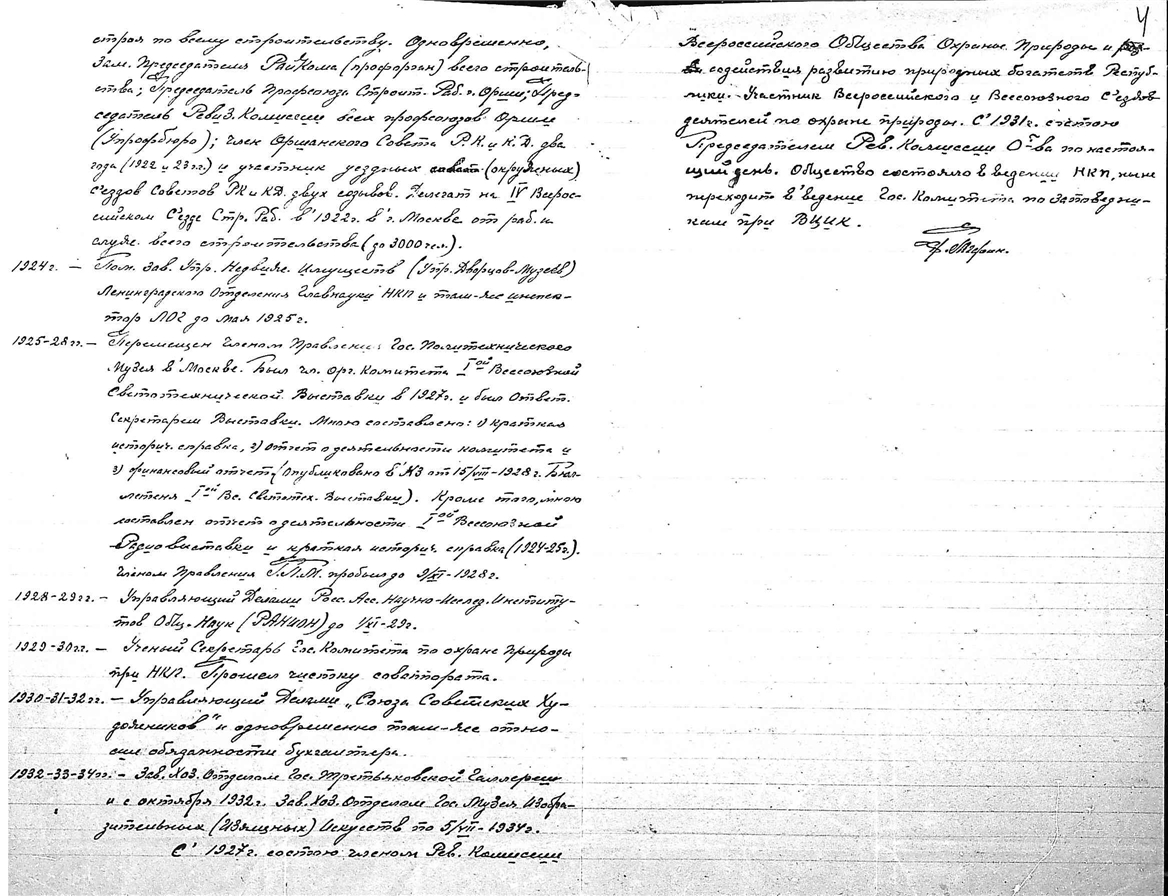 строя по всему строительству. Одновременно,
Зам. Председателя РайКома (профорган) всего строитель-
ства; Председатель Профсоюза Строит. Раб. г. Орши; Пред-
седатель Ревиз. Комиссии всех профсоюзов Орши
(Упрофбюро); член Оршанского Совета Р.К. и К.Д. два
года (1922 и 23 гг.) и участник уездных (окружных)
съездов Советов РК и КД. двух созывов. Делегат на IV Всерос-
сийском С'езде Стр. Раб. в 1922 г. в г. Москве от раб. и
служ. всего строительства (до 3000 чел.).
1924 г. – Пом. Зав. Упр. Недвиж. Имуществ (Упр. Дворцов-Музеев)
Ленинградского Отделения Главнауки НКП и там-же инспек-
тор ЛОГ до мая 1925 г.
1925-28 гг. – Перемещен Членом Правления Гос. Политехнического
Музея в Москве. Был чл. Орг. Комитета Iой Всесоюзной
Светотехнической Выставки в 1927 г. и был Ответ.
Секретарем Выставки. Мною составлено: 1) краткая
историч. справка, 2) отчет о деятельности комитета и
3) финансовый отчет (опубликовано в №3 от 15/VIII-1928 г. Бюл-
летеня Iой Вс. Светотех. Выставки). Кроме того, мною
составлен отчет о деятельности Iой Всесоюзной
Радиовыставки и краткая историч. справка (1924-25 г.).
Членом Правления Г.П.М. пробыл до 9/XI-1928 г.
1928-29 гг. – Управляющий Делами Росс. Асс. Научно-Исслед. Институ-
тов Общ. Наук (РАНИОН) до 1/XI-29 г.
1929-30 гг. – Ученый Секретарь Гос. Комитета по охране Природы
при НКП. Прошел чистку соваппарата.
1930-31-32 гг. – Управляющий Делами „Союза Советских Ху-
дожников" и одновременно там-же отно-
сил обязанности бухгалтера.
1932-33-34 гг. – Зав. Хоз. Отделом Гос. Третьяковской Галлереи
и с октября 1932 г. Зав. Хоз. Отделом Гос. Музея Изобра-
зительных (Изящных) Искусств по 5/VII-1934 г.
С 1927 г. состою членом Рев. Комиссии
4
Всероссийского Общества Охраны Природы и
содействия развитию природных богатств Респуб-
лики. Участник Всероссийского и Всесоюзного С'ездов
деятелей по охране природы. С 1931 г. состою
Председателем Рев. Комиссии О-ва по настоя-
щий день. Общество состояло в ведении НКП, ныне
переходит в ведение Гос. Комитета по Заповедни-
кам при ВЦИК.